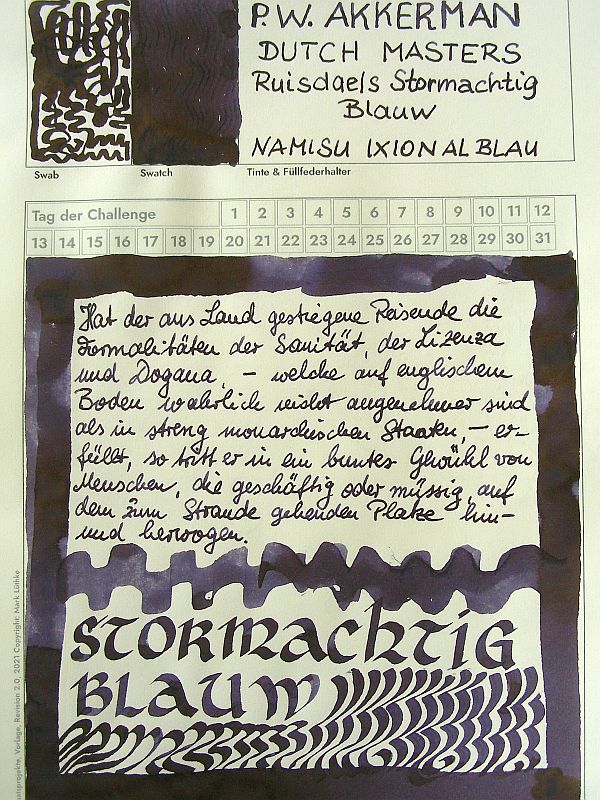 P.W. AKKERMAN
DUTCH MASTERS
Ruisdaels Stormachtig
Blauw
NAMISU IXION AL BLAU
Swab Swatch Tinte & Füllfederhalter
Tag der Challenge 1 2 3 4 5 6 7 8 9 10 11 12
13 14 15 16 17 18 19 20 21 22 23 24 25 26 27 28 29 30 31
Hat der ans Land gestiegene Reisende die
Formalitäten der Sanität, der Lizenza
und Dogana, – welche auf englischem
Boden wahrlich nicht angenehmer sind
als in streng monarchischen Staaten, – er-
füllt, so tritt er in ein buntes Gewühl von
Menschen, die geschäftig oder müssig, auf
dem zum Strande gehenden Platze hin-
und herwogen.
STORMACHTIG
BLAUW
Vorlage, Revision 2.0, 2021 Copyright: Mark Lühke